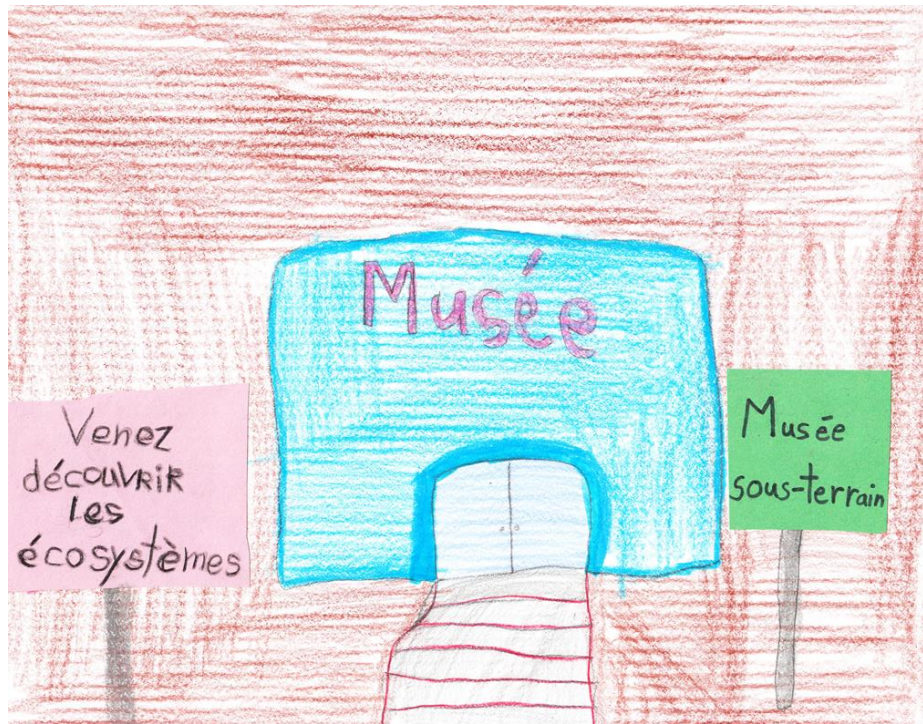 Musée
Venez
découvrir
les
écosystèmes
Musée
sous-terrain